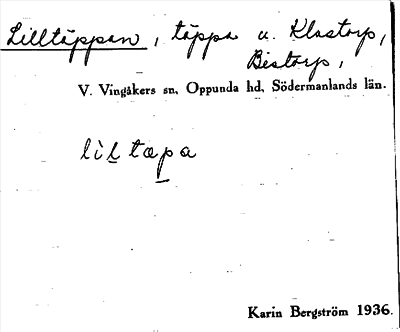 Lilltäppan, täppa u. Klastorp,
Bistorp,
V. Vingåkers sn, Oppunda hd, Södermanlands län.
lil tæpa
Karin Bergström 1936.